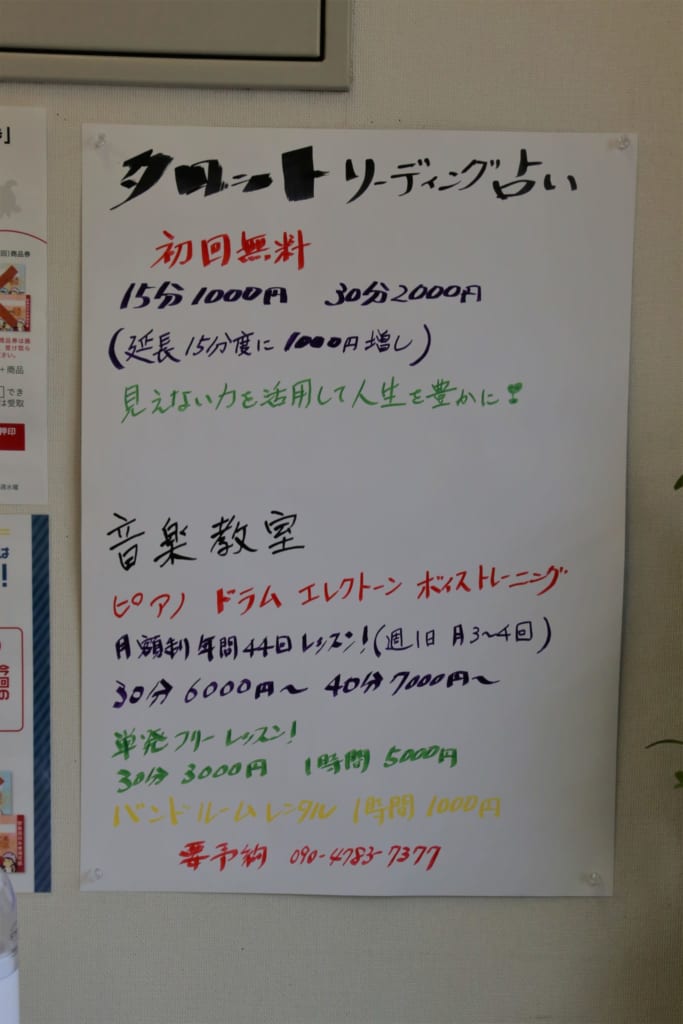 タロットリーディング占い
初回無料
15分1000円 30分2000円
(延長15分度に1000円増し)
見えない力を活用して人生を豊かに❣
音楽教室
ピアノ ドラム エレクトーン ボイストレーニング
月額制 年間44回レッスン!(週1日 月3～4回)
30分 6000円～ 40分 7000円～
単発フリーレッスン!
30分 3000円 1時間 5000円
バンドルームレンタル 1時間 1000円
要予約 090-4783-7377
回)商品券
+商品
でき
は受取
押印
週水曜
は
!
今回の